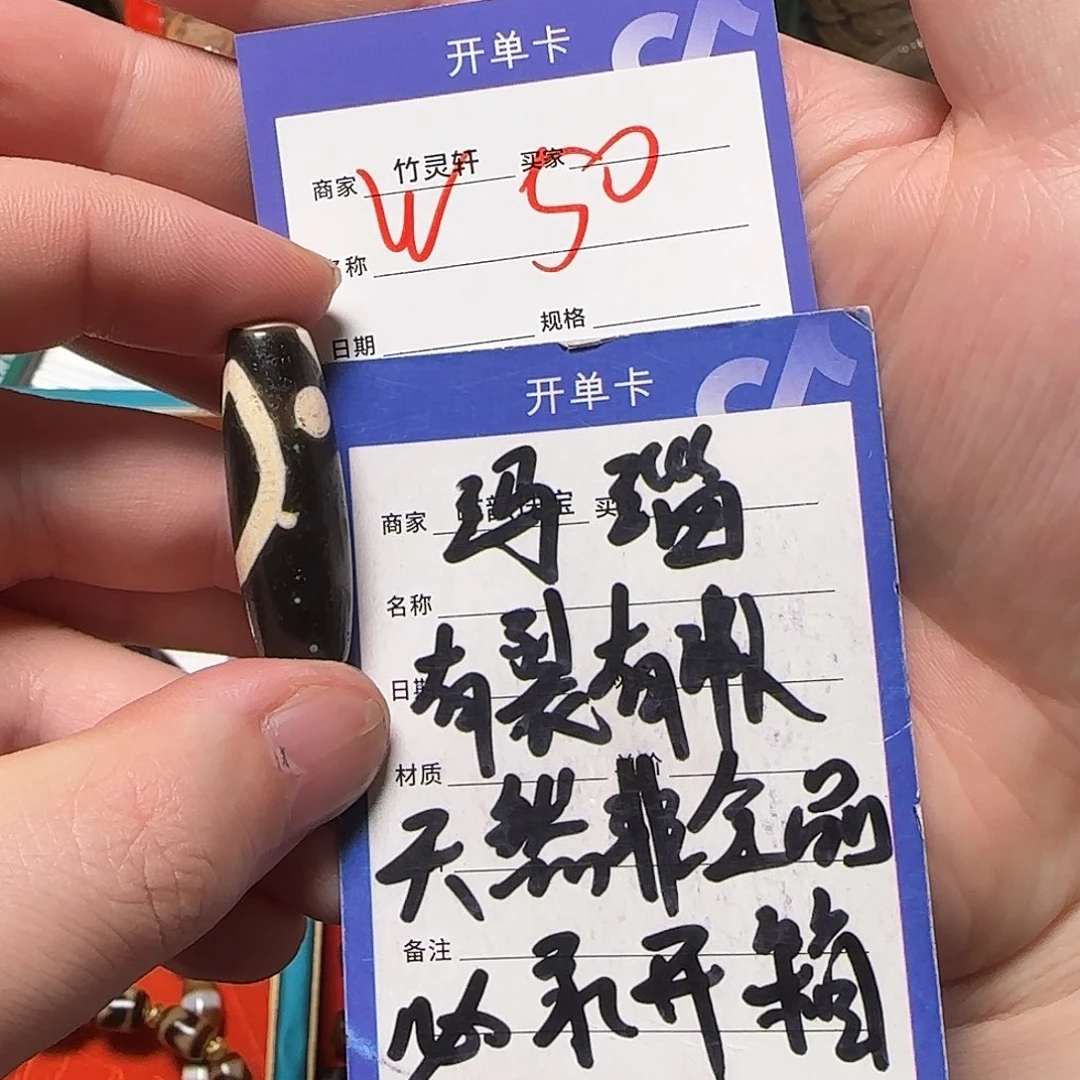 开单卡
商家 竹灵轩 买家
W 50
名称
日期 规格
开单卡
商家 买
玛瑙
名称
有裂有
日期
材质
天然非全品
备注
必录开箱